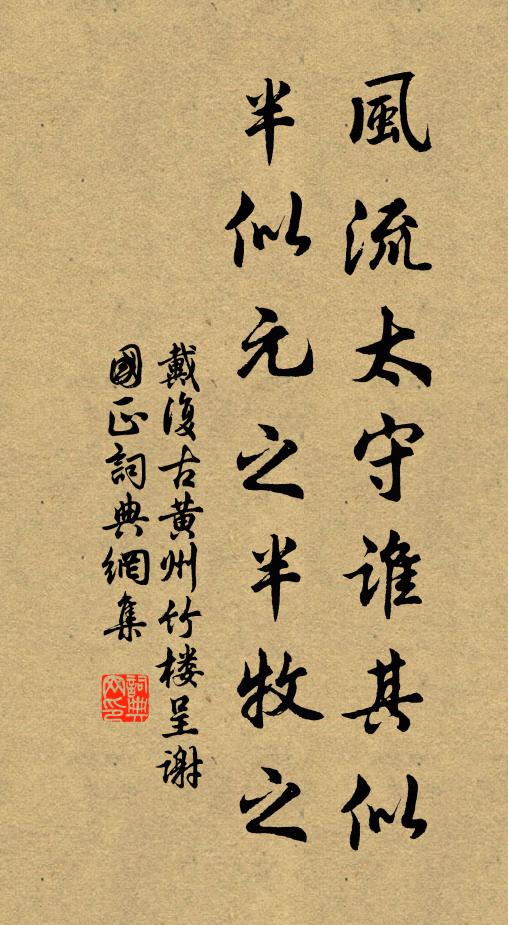 風流太守谁其似
半似元之半牧之
戴復古黄州竹楼呈谢
國正詞典網集
詞典網印